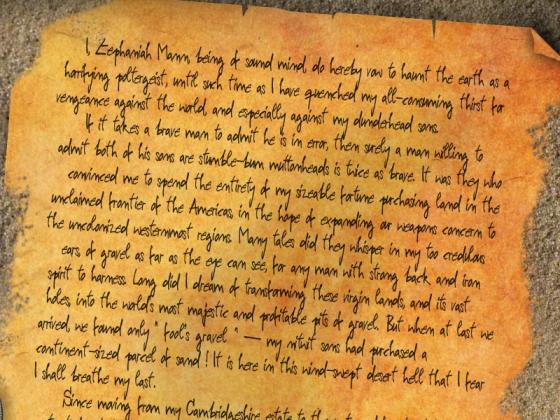 I, Zephaniah Mann, being of sound mind, do hereby vow to haunt the earth as a
horrifying poltergeist, until such time as I have quenched my all-consuming thirst for
vengeance against the world, and especially against my dunderhead sons.
If it takes a brave man to admit he is in error, then surely a man willing to
admit both of his sons are stumble-bum muttonheads is twice as brave. It was they who
convinced me to spend the entirety of my sizeable fortune purchasing land in the
unclaimed frontier of the Americas in the hope of expanding our weapons concern to
the uncolonized westernmost regions. Many tales did they whisper in my too credulous
ears of gravel as far as the eye can see, for any man with strong back and iron
spirit to harness. Long did I dream of transforming these virgin lands, and its vast
holes into the world's most majestic and profitable pits of gravel. But when at last we
arrived, we found only "fool's gravel" — my nitwit sons had purchased a
continent-sized parcel of sand! It is here in this wind-swept desert hell that I fear
I shall breathe my last.
Since moving from my Cambridgeshire estate to